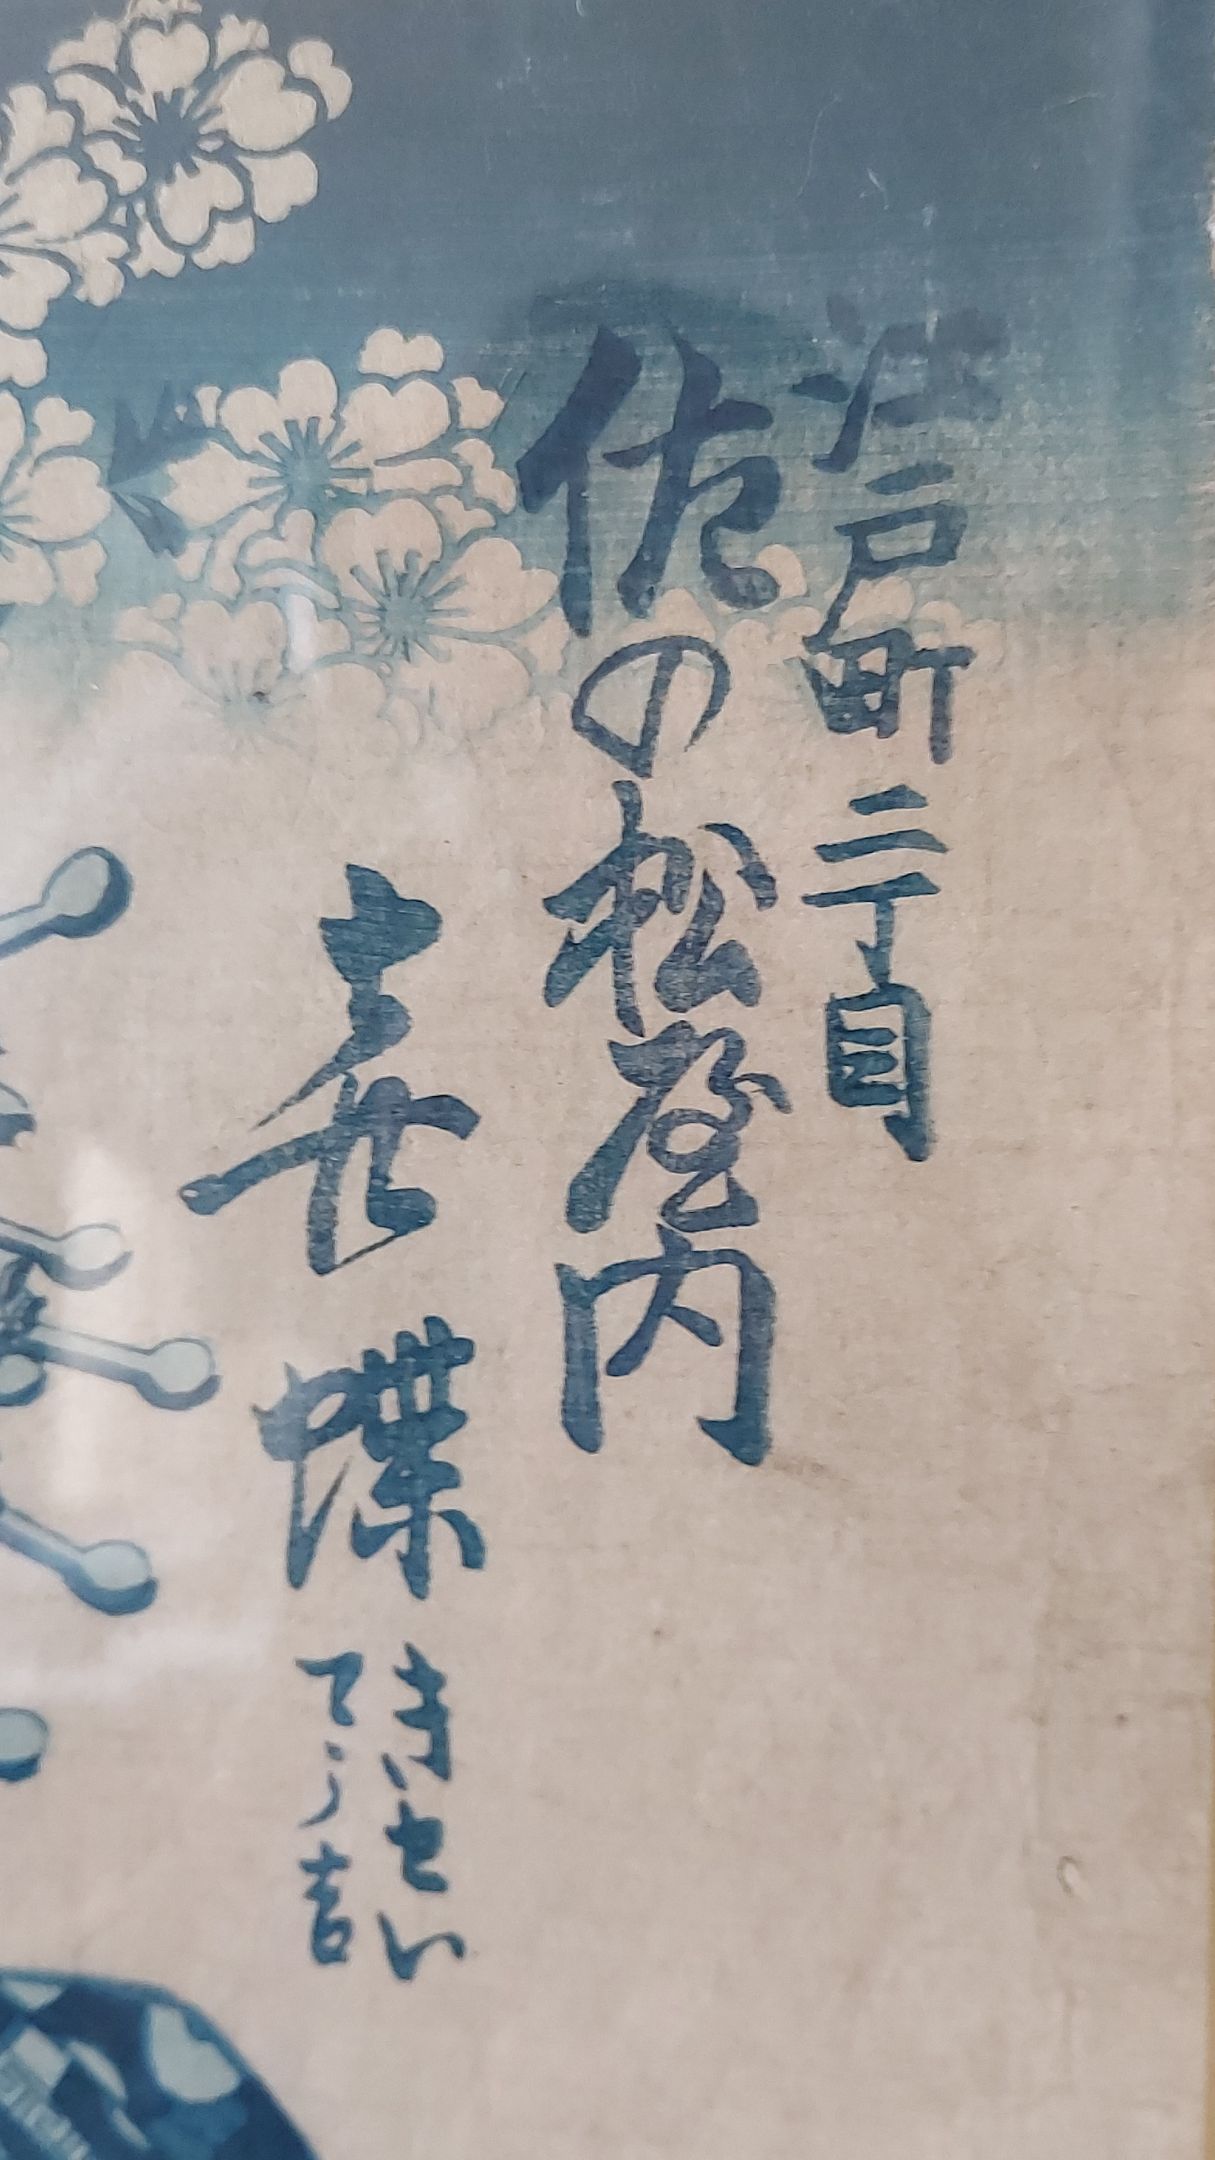 江戸町二丁目
佐の松屋内
喜蝶
せい
てう吉